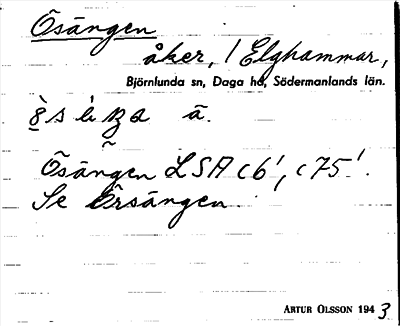 Ösängen
åker, / Elghammar,
Björnlunda sn, Daga hd, Södermanlands län.
ä.
Ösängen LSA c6', c75'.
Se Örsängen.
ARTUR OLSSON 1943